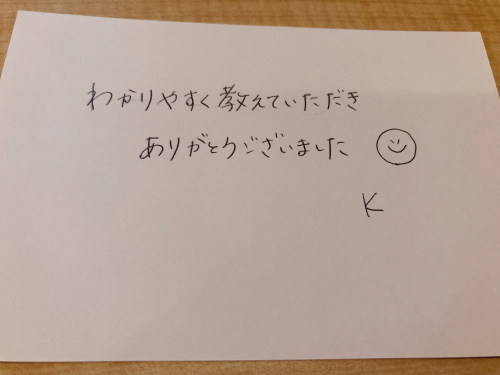 わかりやすく教えていただき
ありがとうございました
K